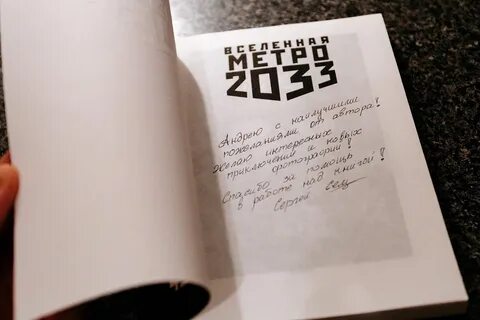 ВСЕЛЕННАЯ
МЕТРО
2033
Андрею с наилучшими
пожеланиями от автора!
Желаю интересных
приключений и новых
фотографий!
Спасибо за помощь
в работе над книгой!
Сергей